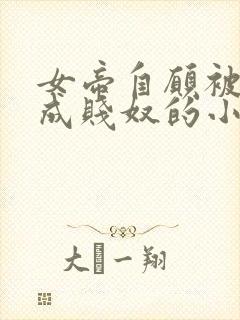 女帝自願被
成賤奴的小
大 一翔